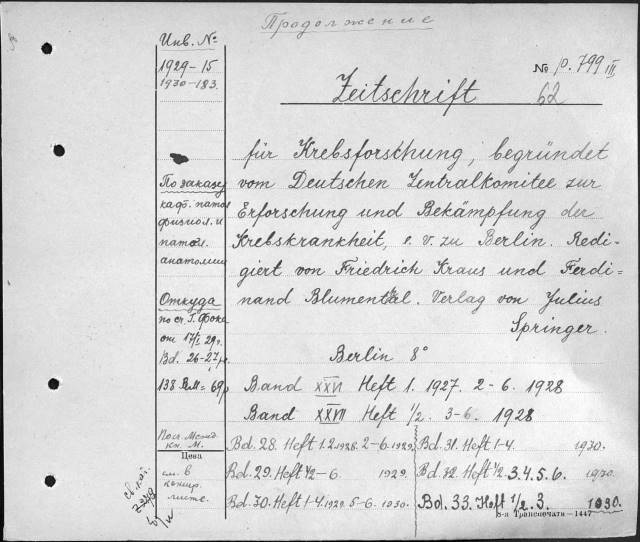 Продолжение
Инв. №
1929-15
1930-183.
№ p. 799 III
62
Zeitschrift
für Krebsforschung, begründet
vom Deutschen Zentralkomitee zur
Erforschung und Bekämpfung der
Krebskrankheit, e. V. zu Berlin. Redi-
giert von Friedrich Kraus und Ferdi-
nand Blumenthal. Verlag von Julius
Springer.
Berlin 8°
Band XXVI Heft 1. 1927. 2-6. 1928
Band XXVII Heft 1/2. 3-6. 1928
Bd. 28. Heft 1.2. 1928. 2-6. 1929.
Bd. 29. Heft 1/2-6 1929.
Bd. 30. Heft 1-4. 1929. 5-6. 1930.
Bd. 31. Heft 1-4 1930.
Bd. 32. Heft 1/2 3.4.5.6. 1930.
Bd. 33. Heft 1/2. 3. 1930.
По заказу
каф. патол
физиол. и
патол.
анатомии
Откуда
по сч. Г. Фока
от 17/I 29 г.
Bd. 26-27 р.
138 RM = 69 р
Цена
см. в
8-я Транспечати—1447